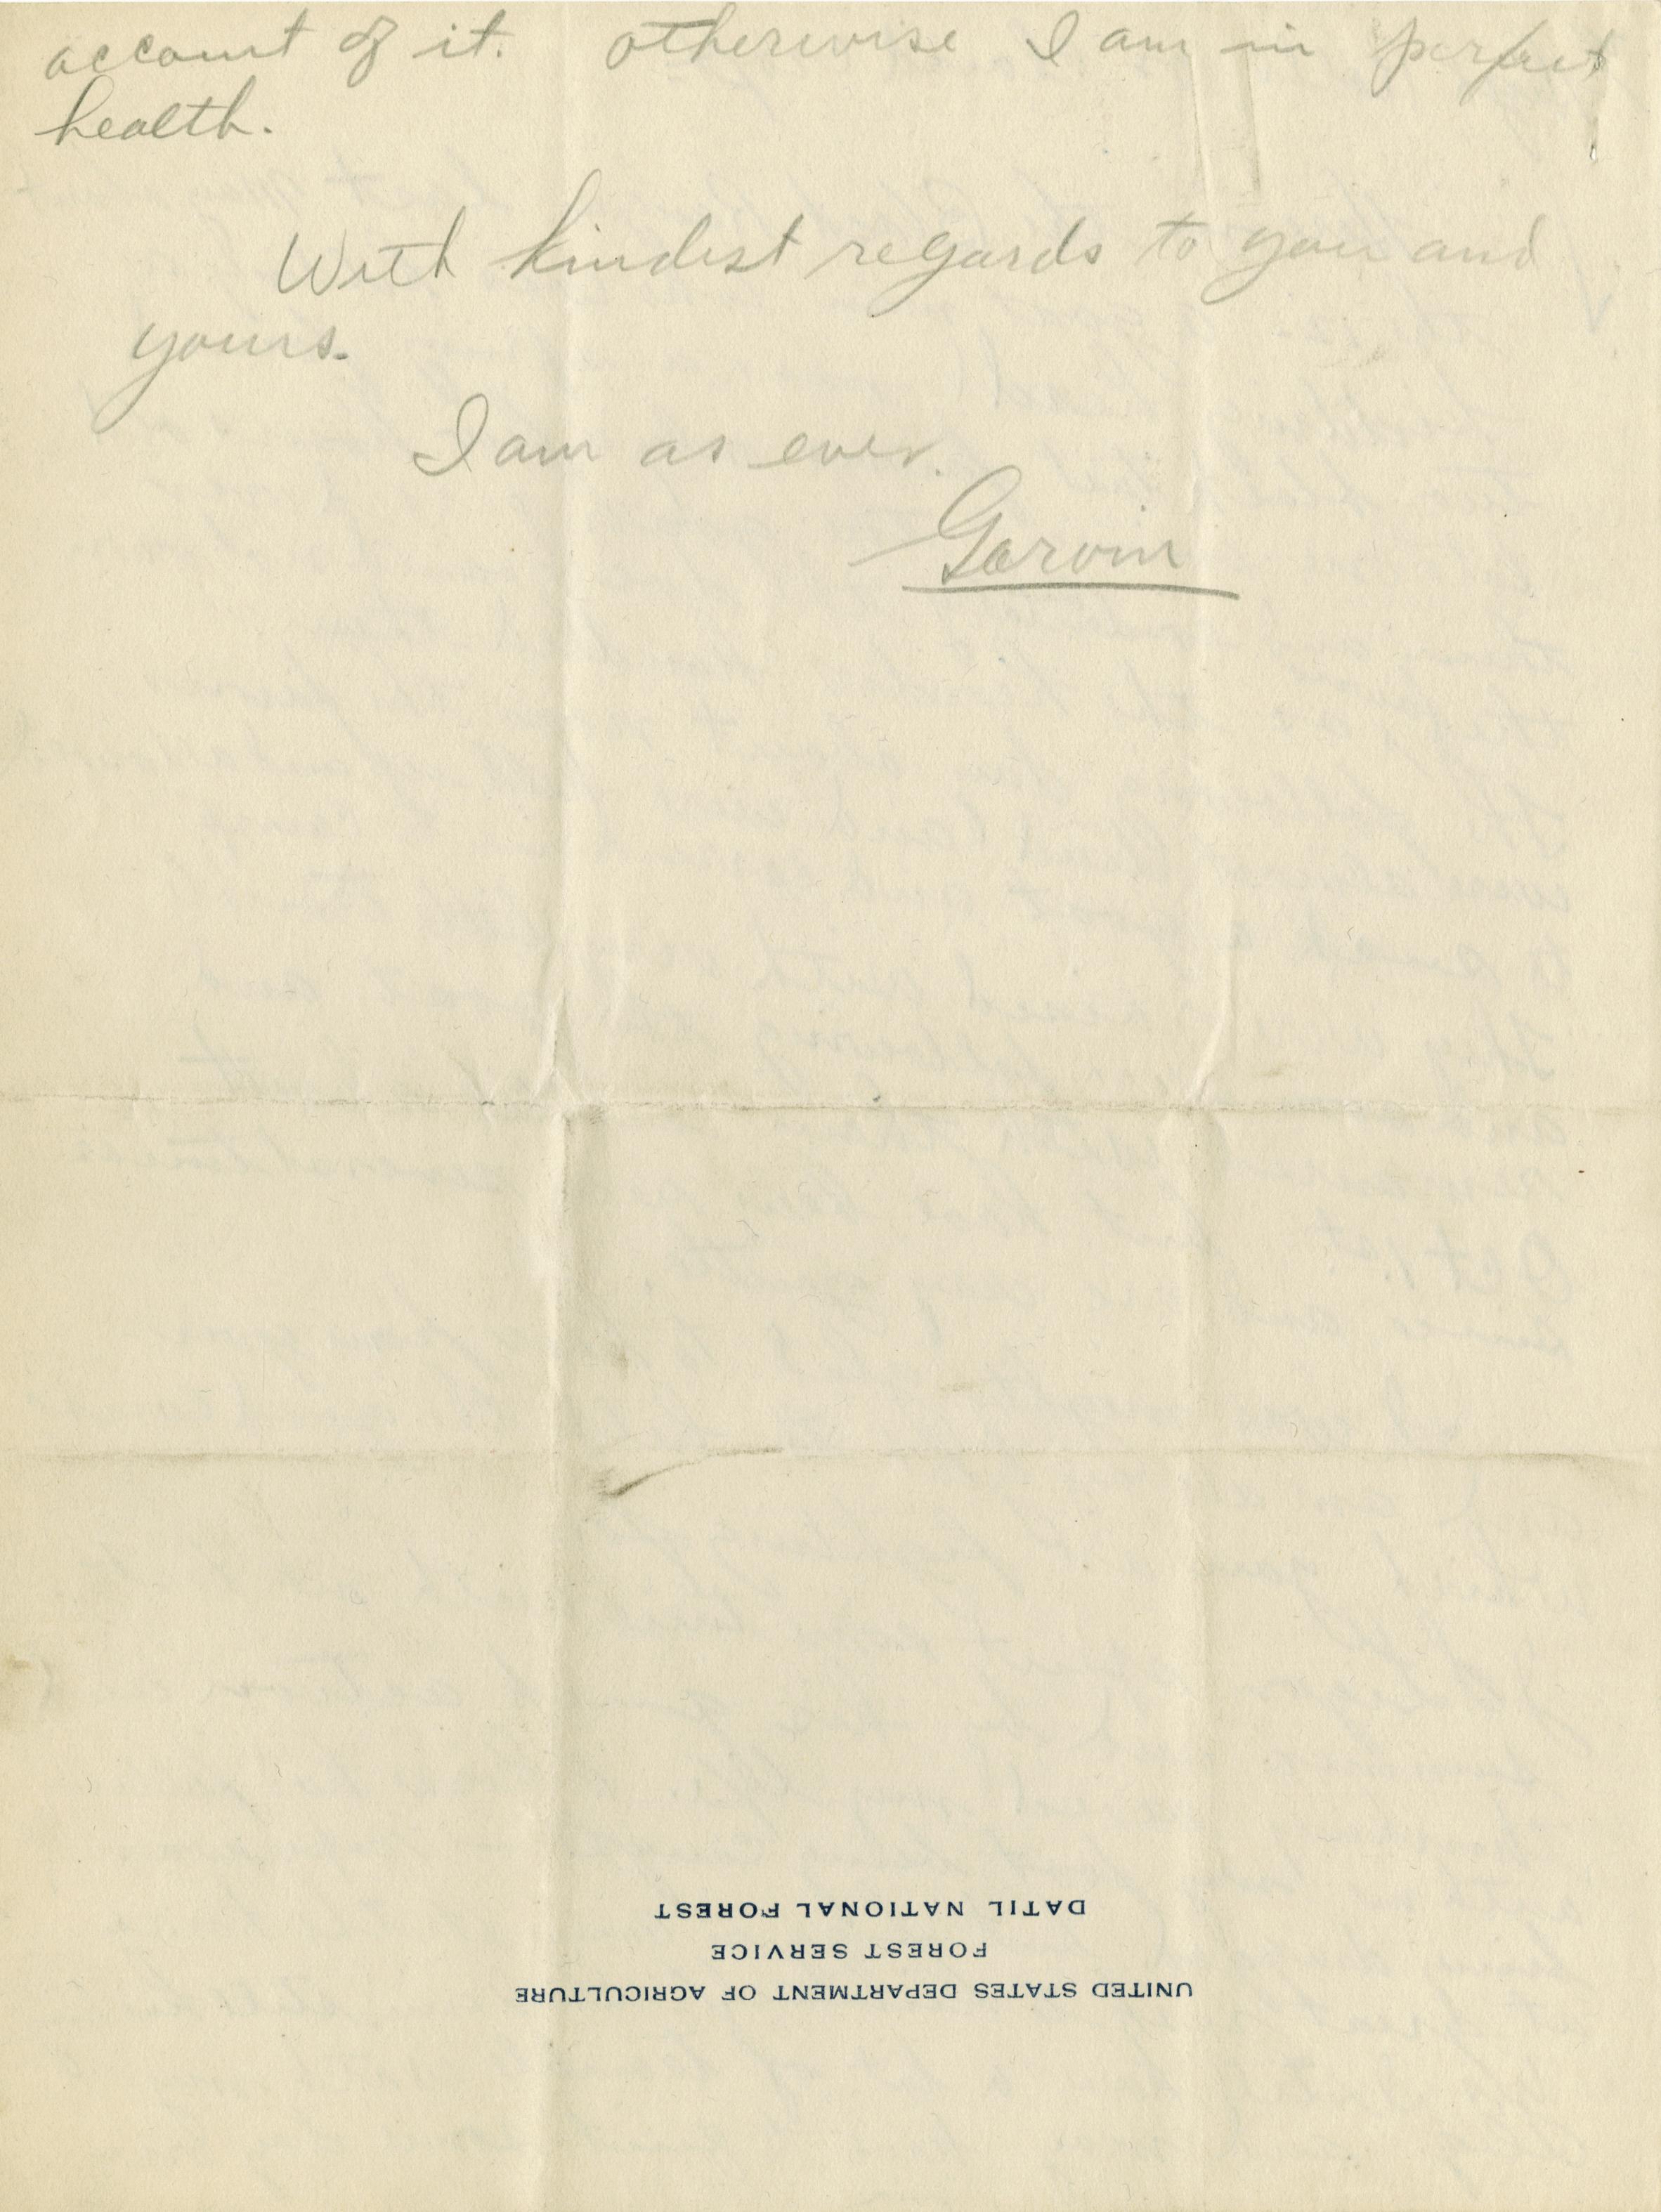 account of it. otherwise I am in perfect
health.
With kindest regards to you and
yours.
I am as ever.
Garvin
UNITED STATES DEPARTMENT OF AGRICULTURE
FOREST SERVICE
DATIL NATIONAL FOREST